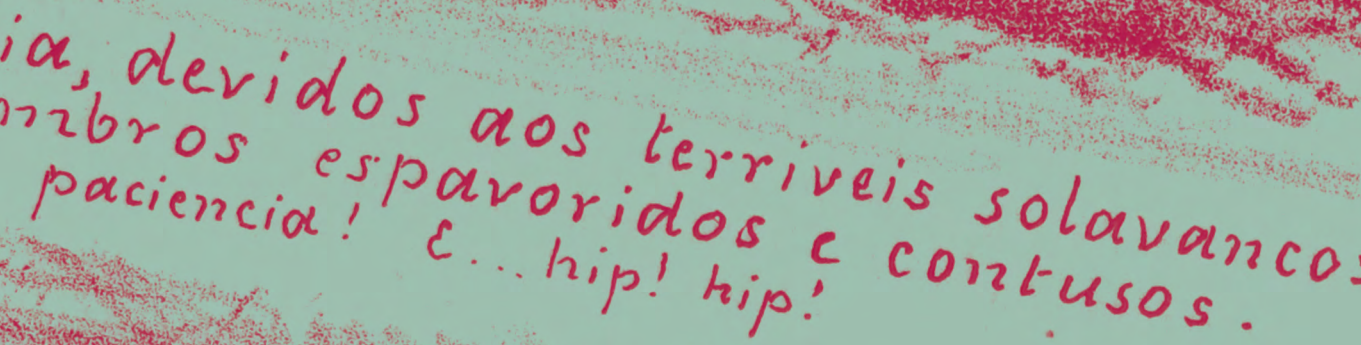 ia, devidos aos terriveis solavancos
mbros espavoridos e contusos.
paciencia! E... hip! hip!